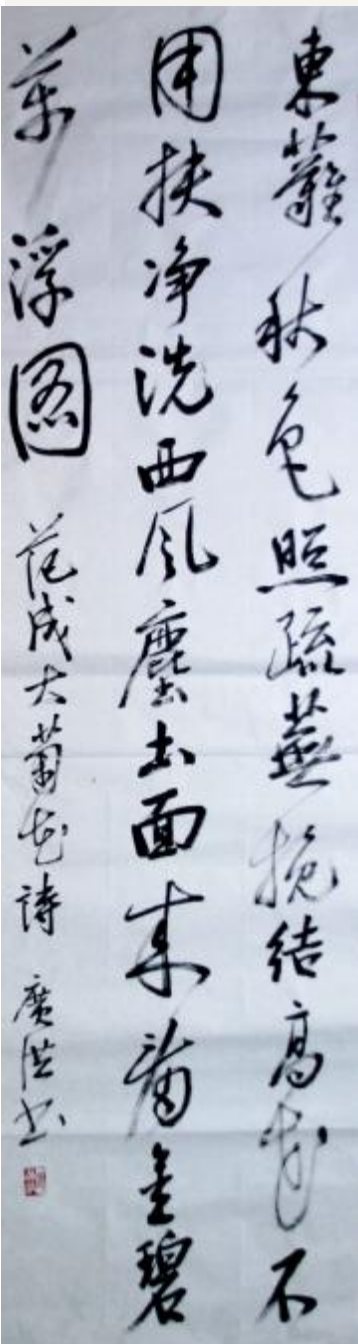 東蘺秋色照疏蕪挽結高花不
用扶净洗西風塵土面来看金碧
萬浮圖 范成大菊花詩 廣洪书